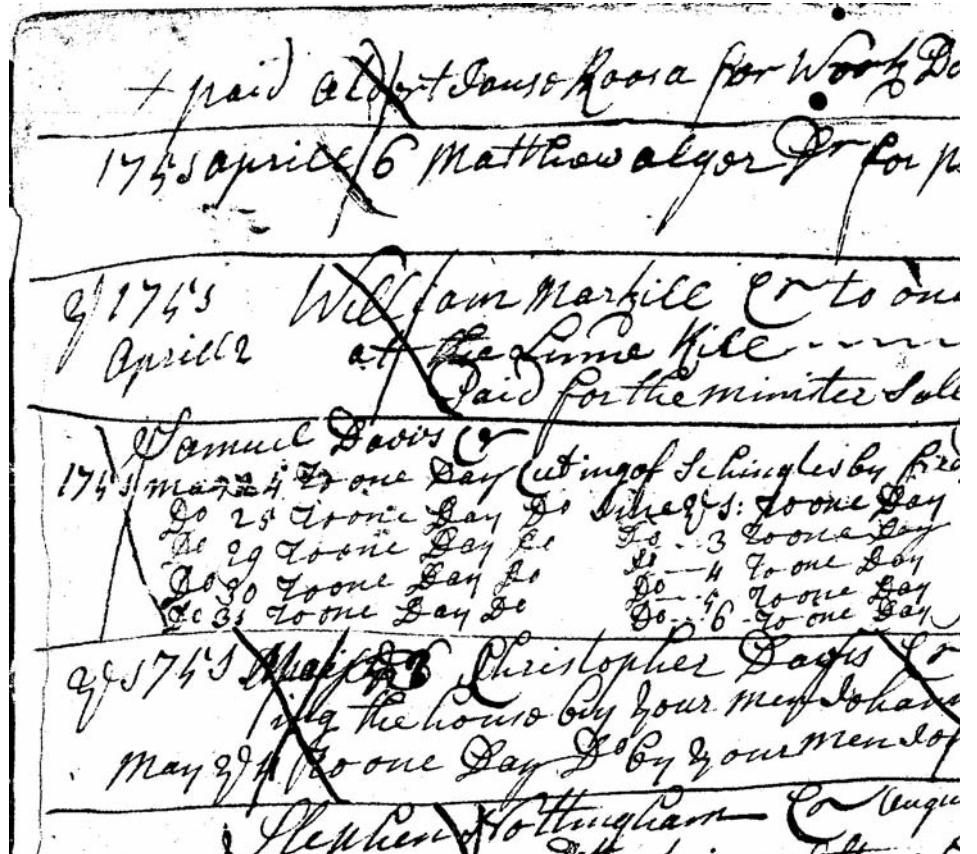 + paid albert Janse Roosa for Work Do
1745 aprill 6 Matthew algor Dr for p
y 1745 William Markile Cr to one
Aprill 2 att the Lime Kill
Paid for the minister Sall
Samuel Davis Cr
1745 may 24 To one Day Cuting of Schingles by
Do 25 To one Day Do June ye 2: To one Day
Do 29 To one Day Do Do - 3 To one Day
Do 30 To one Day Do Do - 4 To one Day
Do 31 To one Day Do Do - 5 To one Day
Do - 6 To one Day
ye 1745 May Christopher Davis Cr
ing the house by your men Johann
May ye 4 To one Day Do by your men
Stephen Nottingham Cr Augu